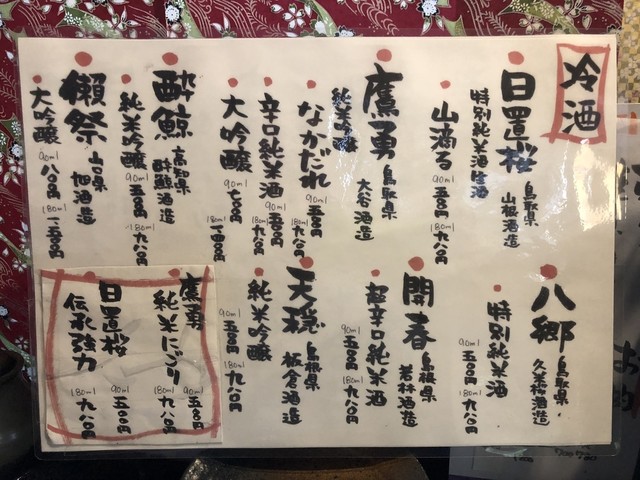 冷酒
日置桜
鳥取県
山根酒造
特別純米酒生酒
山滴る
90ml 五〇〇円
180ml 九八〇円
鷹勇
鳥取県
大谷酒造
純米吟醸
なかだれ
90ml 五〇〇円
180ml 九八〇円
辛口純米酒
90ml 五〇〇円
180ml 九八〇円
大吟醸
90ml 七〇〇円
180ml 一四〇〇円
酔鯨
高知県
酔鯨酒造
純米吟醸
90ml 五〇〇円
180ml 九八〇円
獺祭
山口県
旭酒造
大吟醸
90ml 八〇〇円
180ml 一五〇〇円
八郷
鳥取県
久米桜酒造
特別純米酒
90ml 五〇〇円
180ml 九八〇円
開春
島根県
若林酒造
超辛口純米酒
90ml 五〇〇円
180ml 九八〇円
天穏
島根県
板倉酒造
純米吟醸
90ml 五〇〇円
180ml 九八〇円
鷹勇
純米にごり
90ml 五〇〇円
180ml 九八〇円
日置桜
伝承強力
90ml 五〇〇円
180ml 九八〇円